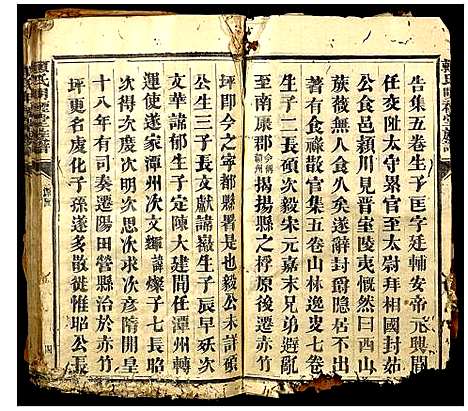 告集五卷生子匡字廷輔安帝元興間
任交阯太守累官至太尉拜相國封茹
公食邑潁川見晋室陵夷慨然曰西山
蕨薇人食久矣遂辭封爵隱居不出
著有食祿散官集五卷山林逸叟七卷
生子二長碩次毅宋元嘉末兄弟避亂
至南康郡今稱贛州揭揚縣之桴原後遷赤竹
坪即今之寧都縣署是也公未詳碩
公生三子長文獻諱嶽生子辰早殀次
文華諱郁生子定陳大建間任潭州轉
運使遂家潭州次文輝諱燦子七長昭
次得次慶次明次思次彦隋開皇
十八年有司奏遷陽田營縣治於赤竹
坪更名虔化子孫遂多散徙惟昭公長